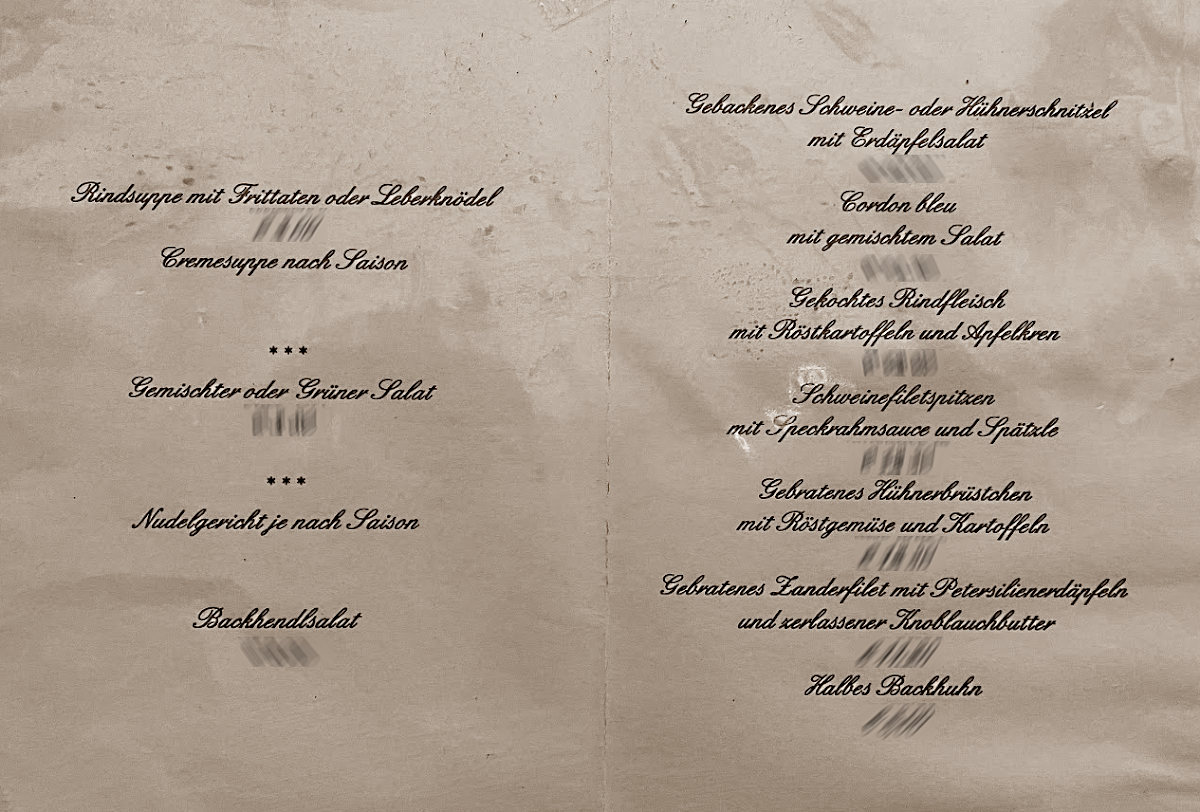 Rindsuppe mit Frittaten oder Leberknödel
Cremesuppe nach Saison
***
Gemischter oder Grüner Salat
***
Nudelgericht je nach Saison
Backhendlsalat
Gebackenes Schweine- oder Hühnerschnitzel
mit Erdäpfelsalat
Cordon bleu
mit gemischtem Salat
Gekochtes Rindfleisch
mit Röstkartoffeln und Apfelkren
Schweinefiletspitzen
mit Speckrahmsauce und Spätzle
Gebratenes Hühnerbrüstchen
mit Röstgemüse und Kartoffeln
Gebratenes Zanderfilet mit Petersilienerdäpfeln
und zerlassener Knoblauchbutter
Halbes Backhuhn